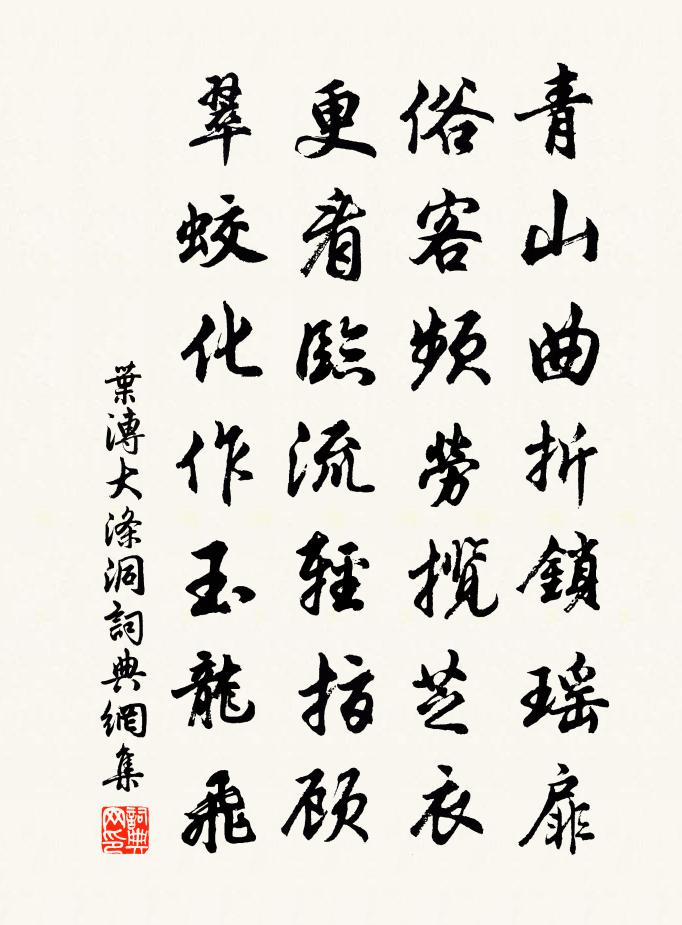 青山曲折鎖瑶扉
俗客頻勞攬芝衣
更看臨流輕指顾
翠蛟化作玉龍飛
葉溥大滌洞詞典網集
詞典网印